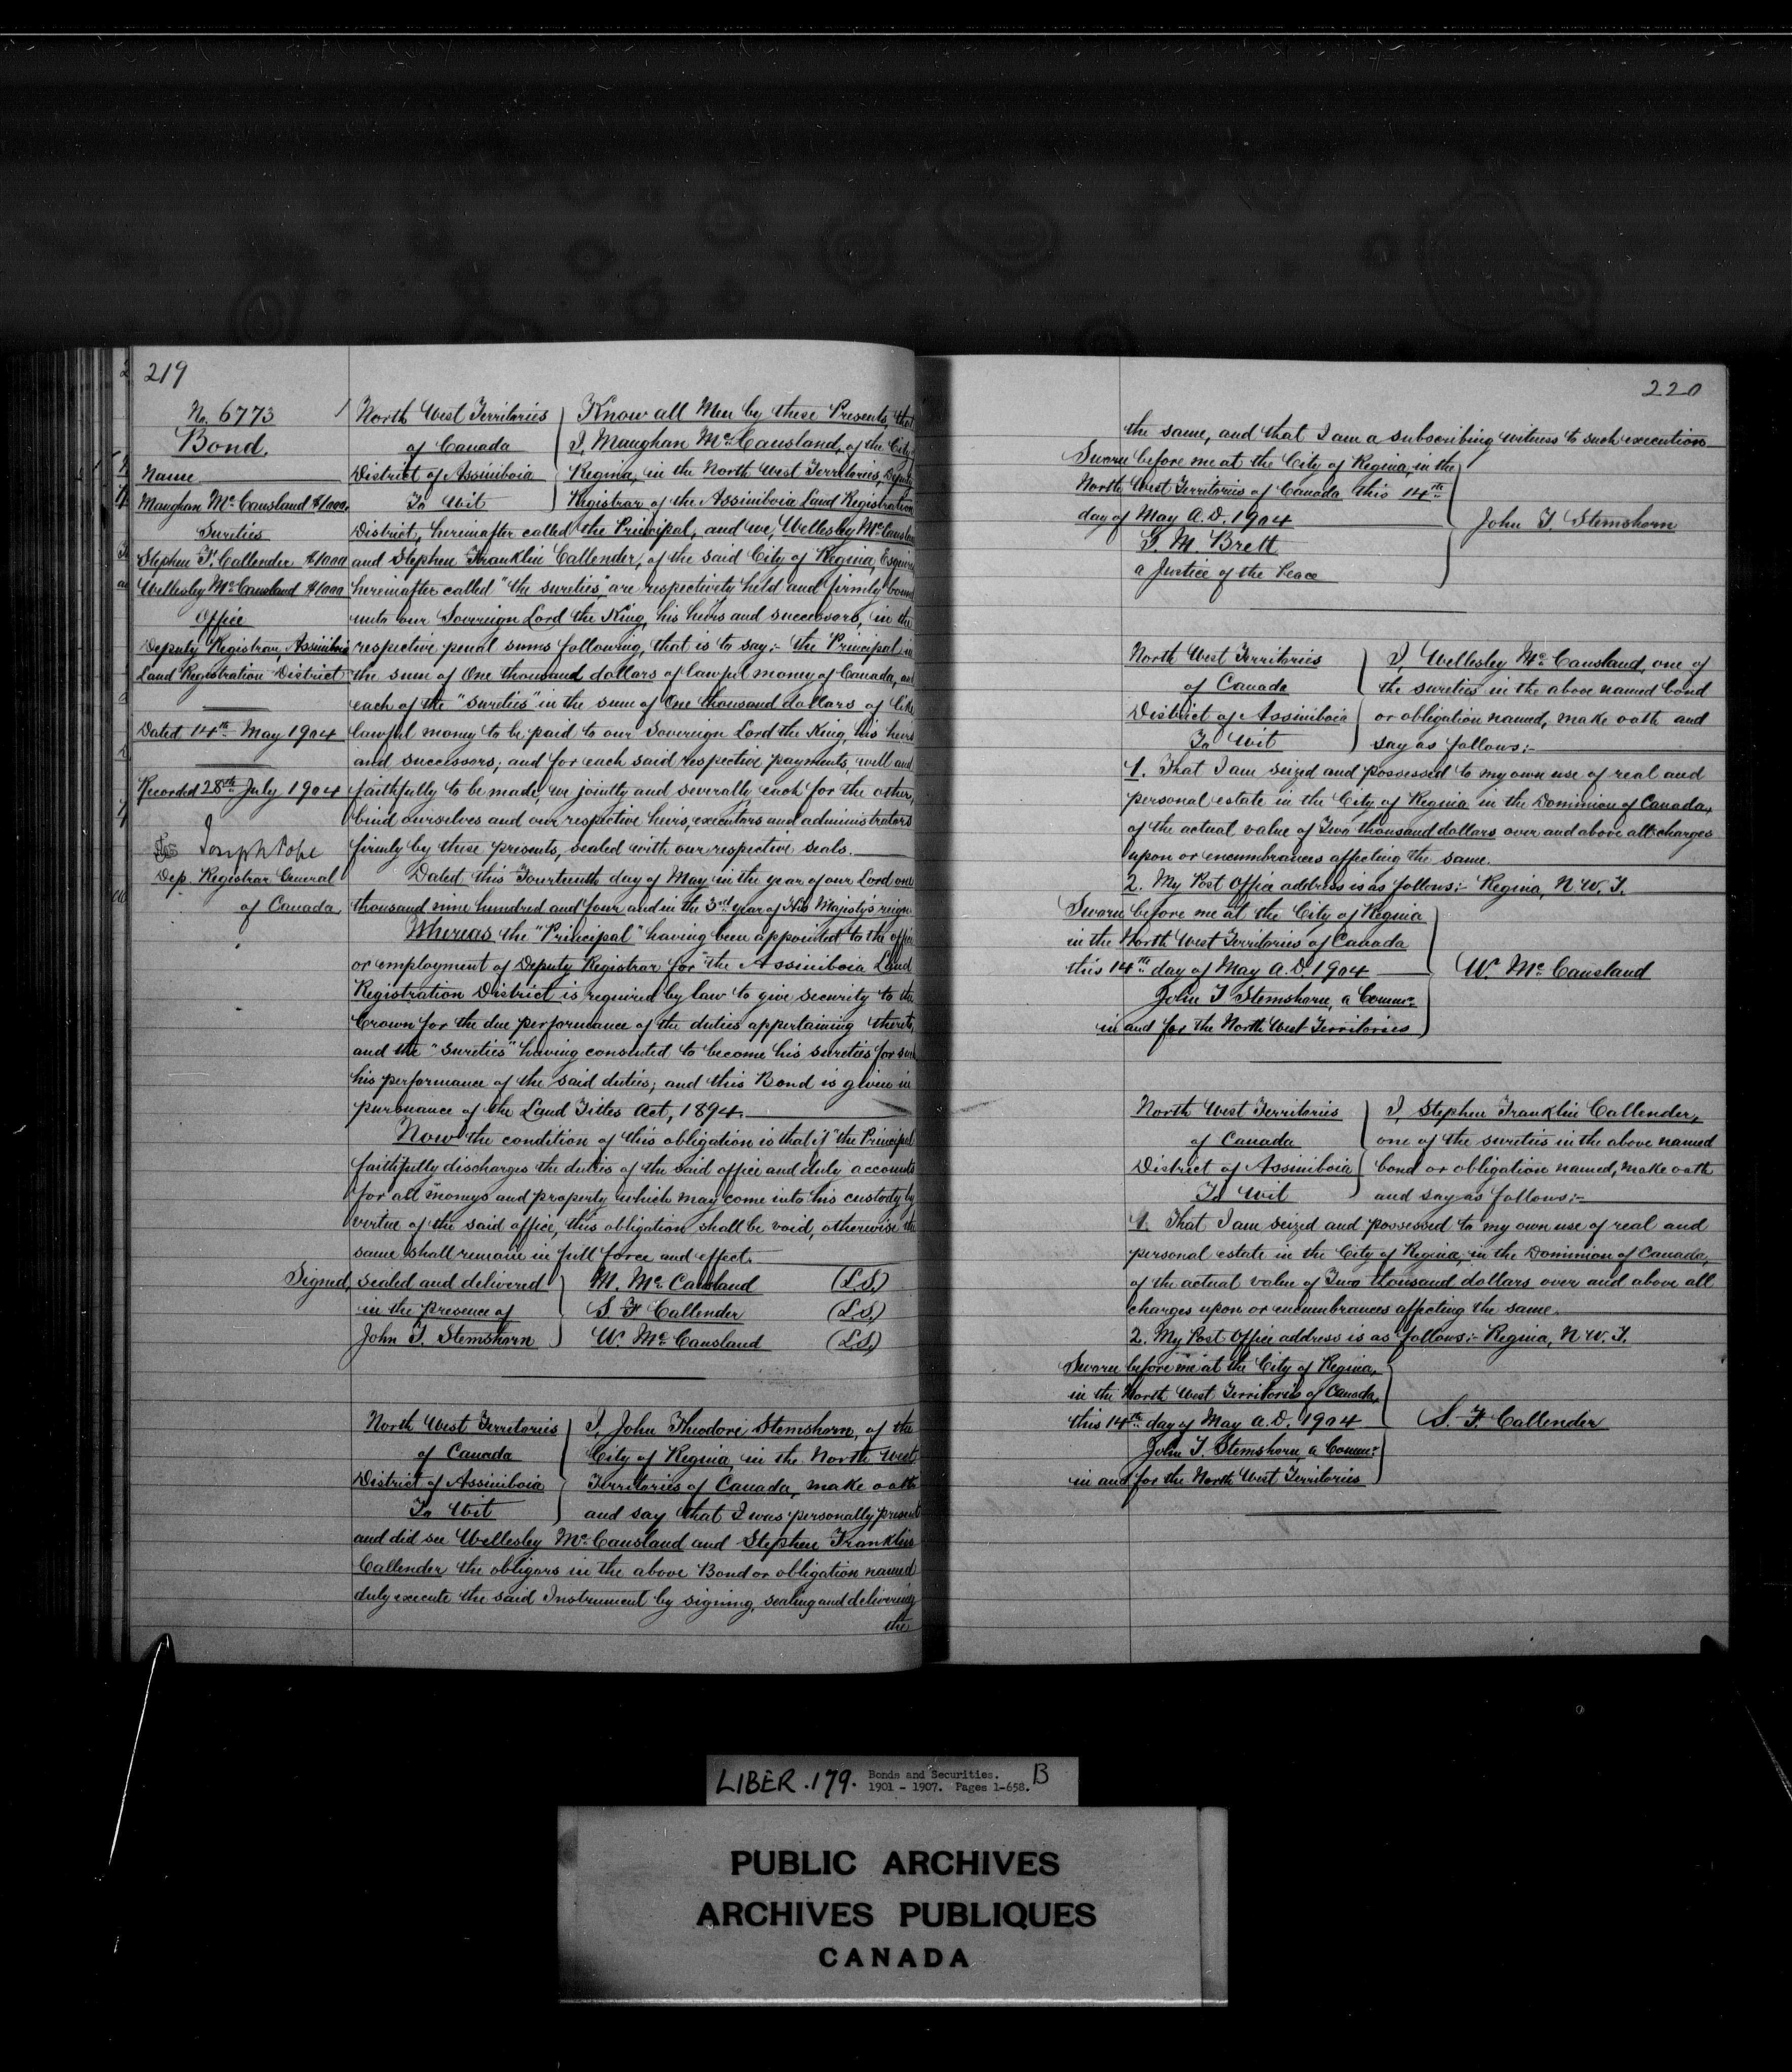 219
No. 6773
Bond.
Name
Maughan McCausland $1000.
Sureties
Stephen F. Callender $1000
Wellesley McCausland $1000
Office
Deputy Registrar, Assiniboia
Land Registration District
Dated 14th May 1904
Recorded 28th July 1904
Joseph Pope
Dep. Registrar General
of Canada.
North West Territories
of Canada
District of Assiniboia
To Wit
Know all Men by these Presents, that
I, Maughan McCausland, of the City
Regina, in the North West Territories, Deputy
Registrar of the Assiniboia Land Registration
District, hereinafter called the Principal, and we, Wellesley McCausland
and Stephen Franklin Callender, of the said City of Regina, Esquires
hereinafter called "the sureties", are respectively held and firmly bound
unto our Sovereign Lord the King, his heirs and successors, in the
respective penal sums following, that is to say:- the "Principal" in
the sum of One thousand dollars of lawful money of Canada, and
each of the "sureties" in the sum of One thousand dollars of like
lawful money to be paid to our Sovereign Lord the King, his heirs
and successors; and for each said respective payments, well and
faithfully to be made, we jointly and severally each for the other,
bind ourselves and our respective heirs, executors and administrators
firmly by these presents, sealed with our respective seals.
Dated this Fourteenth day of May in the year of our Lord one
thousand nine hundred and four and in the 3rd year of His Majesty's reign.
Whereas the "Principal" having been appointed to the office
or employment of Deputy Registrar for the Assiniboia Land
Registration District is required by law to give security to the
Crown for the due performance of the duties appertaining thereto,
and the "sureties" having consented to become his sureties for such
his performance of the said duties; and this Bond is given in
pursuance of the Land Titles Act, 1894.
Now the condition of this obligation is that if "the Principal"
faithfully discharges the duties of the said office and duly accounts
for all moneys and property which may come into his custody by
virtue of the said office, this obligation shall be void, otherwise the
same shall remain in full force and effect.
Signed, sealed and delivered
in the presence of
John T. Stemshorn
M. McCausland (L.S.)
S F Callender (L.S.)
W. McCausland (L.S.)
North West Territories
of Canada
District of Assiniboia
To Wit
I, John Theodore Stemshorn, of the
City of Regina, in the North West
Territories of Canada, make oath
and say that I was personally present
and did see Wellesley McCausland and Stephen Franklin
Callender the obligors in the above Bond or obligation named
duly execute the said Instrument by signing, sealing and delivering
the
220
the same, and that I am a subscribing witness to such execution
Sworn before me at the City of Regina, in the
North West Territories of Canada this 14th
day of May A.D. 1904
G. M. Brett
a Justice of the Peace
John T. Stemshorn
North West Territories
of Canada
District of Assiniboia
To Wit
I, Wellesley McCausland, one of
the sureties in the above named bond
or obligation named, make oath and
say as follows:-
1. That I am seized and possessed to my own use of real and
personal estate in the City of Regina in the Dominion of Canada,
of the actual value of Two thousand dollars over and above all charges
upon or encumbrances affecting the same.
2. My Post Office address is as follows:- Regina, N.W.T.
Sworn before me at the City of Regina
in the North West Territories of Canada
this 14th day of May A.D. 1904
John T Stemshorn, a Commr
in and for the North West Territories
W. McCausland
North West Territories
of Canada
District of Assiniboia
To Wit
I, Stephen Franklin Callender,
one of the sureties in the above named
bond or obligation named, make oath
and say as follows:-
1. That I am seized and possessed to my own use of real and
personal estate in the City of Regina, in the Dominion of Canada,
of the actual value of Two thousand dollars over and above all
charges upon or encumbrances affecting the same.
2. My Post Office address is as follows:- Regina, N.W.T.
Sworn before me at the City of Regina,
in the North West Territories of Canada,
this 14th day of May A.D. 1904
John T. Stemshorn, a Commr
in and for the North West Territories
S. F. Callender
LIBER .179. Bonds and Securities. B
1901 - 1907. Pages 1-658.
PUBLIC ARCHIVES
ARCHIVES PUBLIQUES
CANADA